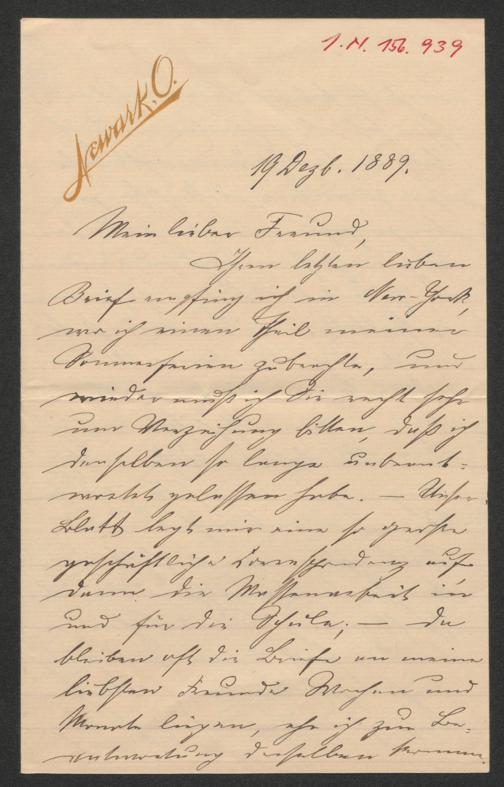 I.N. 156.939
Newark, O.
19 Dezb. 1889.
Mein lieber Freund,
Ihren letzten lieben
Brief empfing ich in New-York,
wo ich einen Theil meiner
Sommerferien zubrachte, und
wieder muß ich Sie recht sehr
um Verzeihung bitten, daß ich
denselben so lange unbeant-
wortet gelassen habe. — Unser
Blatt legt mir eine so große
geschäftliche Correspondenz auf
dann die Massenarbeit in
und für die Schule; — da
bleiben oft die Briefe an meine
liebsten Freunde Wochen und
Monate liegen, ehe ich zur Be-
antwortung derselben komme.